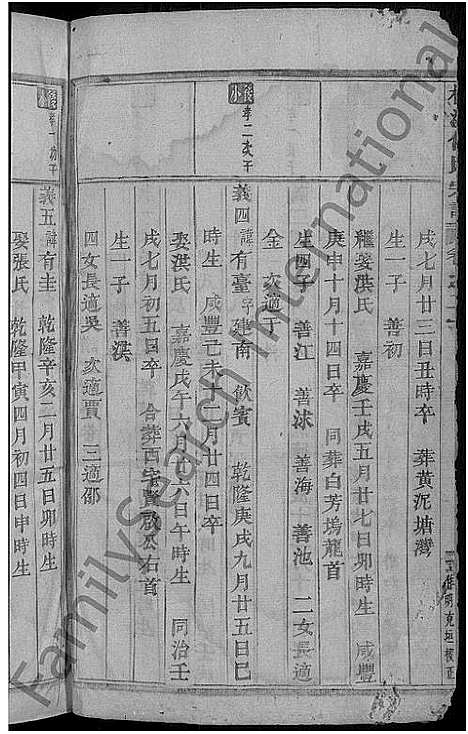 戌七月廿三日丑時卒 葬黃泥塘灣
生一子 善初
繼娶洪氏 嘉慶壬戌五月廿七日卯時生 咸豐
庚申十月十四日卒 同葬白芳塢龍首
生四子 善江 善球 善海 善池 二女長適
金 次適于
孝二次子
義四 諱有臺 字建南 飲賓 乾隆庚戌九月廿五日巳
時生 咸豐己未十二月廿四日卒
娶洪氏 嘉慶戊午六月廿六日午時生 同治壬
戌七月初五日卒 合葬西宅賢啟公右首
生一子 善淇
四女長適吳 次適賈 三適邵
孝一次子
義五 諱有圭 乾隆辛亥二月廿五日卯時生
娶張氏 乾隆甲寅四月初四日申時生
FamilySearch International